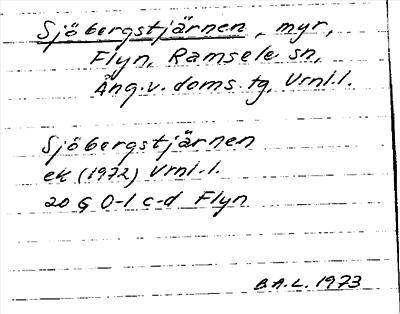 Sjöbergstjärnen, myr,
Flyn, Ramsele sn,
Ång.v. doms.tg, Vrnl.l.
Sjöbergstjärnen
ek (1972) Vrnl.l.
20 G 0-1 c-d Flyn
B.A.L. 1973